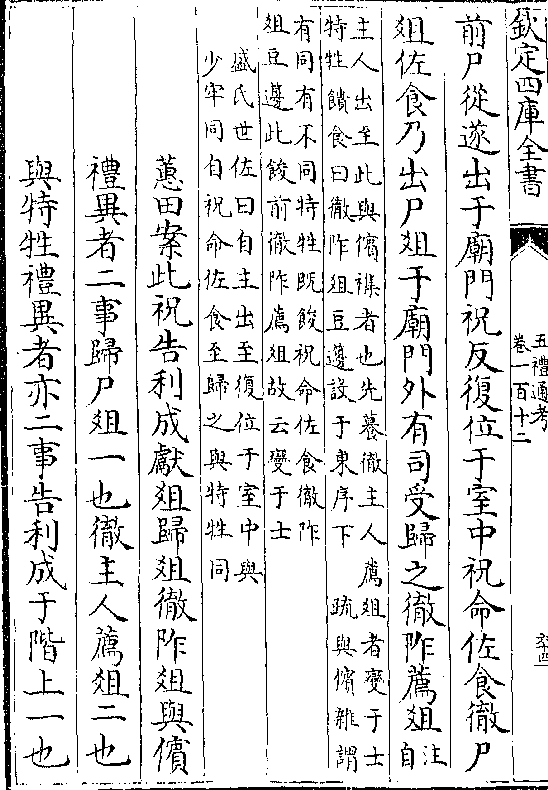 欽定四庫全書
五禮通考
卷一百十二
前尸從遂出于廟門祝反復位于室中祝命佐食徹尸
俎佐食乃出尸俎于廟門外有司受歸之徹阼薦俎
注
自
主人出至此與儐襍者也先養徹主人薦俎者變于士
特牲饋食曰徹阼俎豆籩設于東序下 疏與儐雜謂
有同有不同特牲既餕祝命佐食徹阼
俎豆籩此餕前徹阼薦俎故云變于士
盛氏世佐曰自主出至復位于室中與
少牢同自祝命佐食至歸之與特牲同
蕙田案此祝告利成獻俎歸俎徹阼俎與儐
禮異者二事歸尸俎一也徹主人薦俎二也
與特牲禮異者亦二事告利成于階上一也